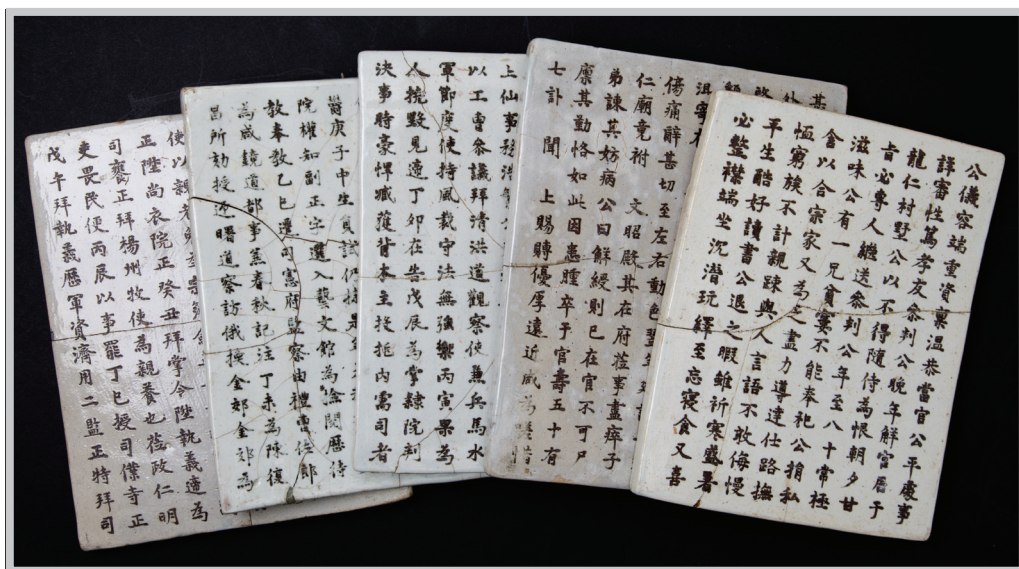 公儀容端重資稟温恭當官公平處事
詳審性篤孝友叅判公晚年解官居于
龍仁村墅公以不得隨侍為恨朝夕甘
旨必專人繼送叅判公年至八十常極
滋味公有一兄貧寠不能奉祀公捐私
舍以合宗家又為之盡力導達仕路撫
恤窮族不計親踈與人言語不敢侮慢
平生酷好讀書公退之暇雖祈寒盛暑
必整襟端坐沉潛玩繹至忘寢食又喜
傷痛辭甚切至左右動色翌
仁廟竟祔 文昭殿其在府莅事盡瘁子
弟諫其妨病公曰解綬則已在官不可尸
廩其勤恪如此因患腫卒于官壽五十有
七訃 聞 上賜賻優厚遠近咸為嗟惜
上仙事務浩
以工曹叅議拜清洪道觀察使兼兵馬水
軍節度使持風裁守法無強禦丙寅果為
人搀黜見遞丁卯在告戊辰為掌隸院判
決事時豪悍臧獲背本主投托內需司者
爵庚子中生員試仍
院權知副正字選入藝文館為 閱歷待
教奉教乙巳遷司憲府監察由禮曹佐郎
為咸鏡道都事兼春秋記注丁未為陳復
昌所劾授 道察訪俄換金郊 為
使以親老
正陞尚衣院正癸丑拜掌令陞執義遞為
司饔正拜楊州牧使為親養也莅政仁明
吏畏民便丙辰以事罷丁巳授司僕寺正
戊午拜執義歷軍資濟用二監正特拜司